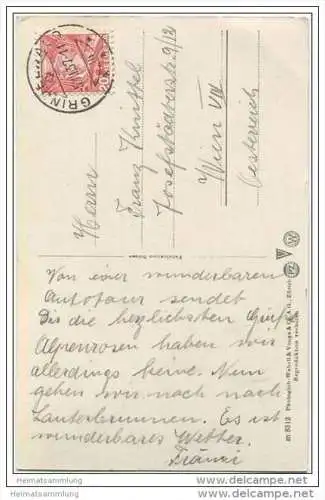 GRINDELWALD
20
Herrn
Franz Knittel
Josefstädterstr. 9/12
Wien VIII
Oesterreich
Von einer wunderbaren
Autotour sendet
Dir die herzlichsten Grüße
Alpenrosen haben wir
allerdings keine. Nun
gehen wir noch nach
Lauterbrunnen. Es ist
wunderbares Wetter.
Fränzi
Photoglob-Wehrli & Vouga & Co. A.G., Zürich
Reproduktion verboten
Heimatsammlung
www.heimatsammlung.de
Heimatsammlung
www.heimatsammlung.de